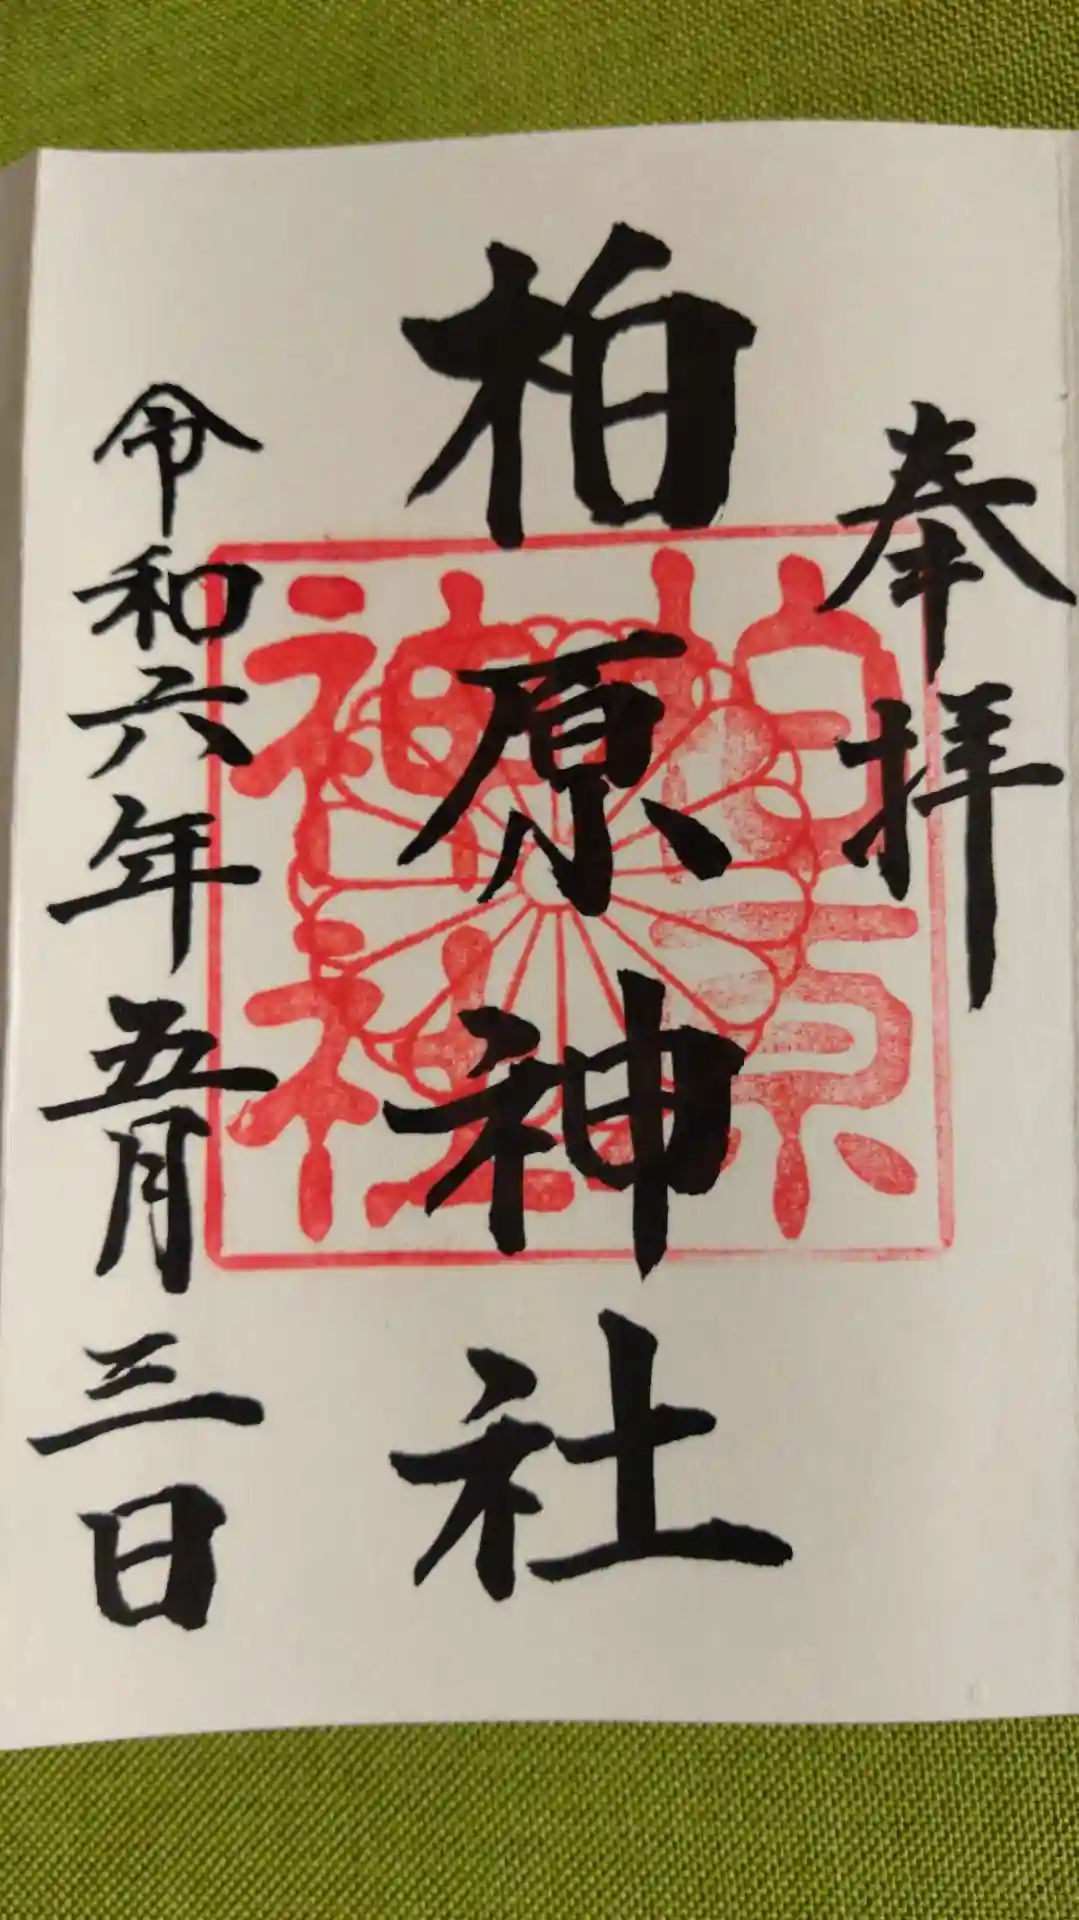 奉拝
柏原神社
柏原神社
令和六年五月三日